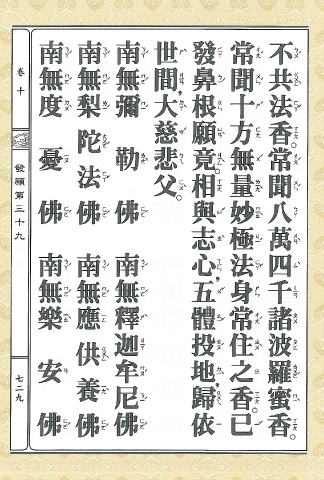 不共法香。常聞八萬四千諸波羅蜜香。
常聞十方無量妙極法身常住之香。已
發鼻根願竟。相與志心,五體投地,歸依
世間,大慈悲父。
南無彌勒佛 南無釋迦牟尼佛
南無梨陀法佛 南無應供養佛
南無度憂佛 南無樂安佛
卷十
發願第三十九
七二九